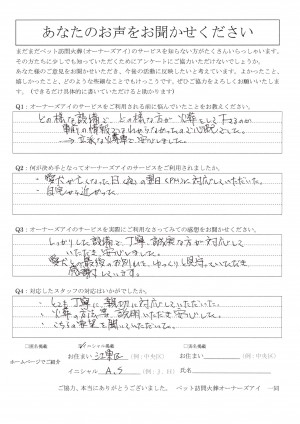 あなたのお声をお聞かせください
まだまだペット訪問火葬(オーナーズアイ)のサービスを知らない方がたくさんいらっしゃいます。
その方たちに少しでも知っていただくためにアンケートにご協力いただけないでしょうか。
あなた様のご意見をお聞かせいただき、今後の活動に反映したいと考えています。よかったこと、
嬉しかったこと、どのような些細なことでもけっこうです。ぜひご協力をよろしくお願いいたし
ます。(できるだけ具体的に書いていただけますと幸いです)
Q1:オーナーズアイのサービスをご利用される前に悩んでいたことをお教えください。
どの様な設備で、どの様な方が火葬をして下さるのか
事前の情報では
→ 立派な火葬車で安心しました。
Q2:何が決め手となってオーナーズアイのサービスをご利用されましたか。
・愛犬が亡くなった日(夜)の翌日(PM)に対応していただいた。
・自宅から近かった
Q3:オーナーズアイのサービスを実際にご利用なさってみての感想をお聞かせください。
しっかりした設備で、丁寧、誠実な方が対応して
いただき安心しました。
愛犬との最後のお別れを、ゆっくりと見守っていただき
感謝しています。
Q4:対応したスタッフの対応はいかがでしたか。
・とても丁寧に、親切に対応していただいた。
・火葬の方法等、説明いただき安心しました。
・こちらの要望を聞いていただいた。
ホームページでご紹介
□イニシャル掲載
お住まい 江東区 (例:中央区)
イニシャル A.S (例:J.H)
□実名掲載
お住まい (例:中央区)
氏名
ご協力、本当にありがとうございました。 ペット訪問火葬オーナーズアイ 一同